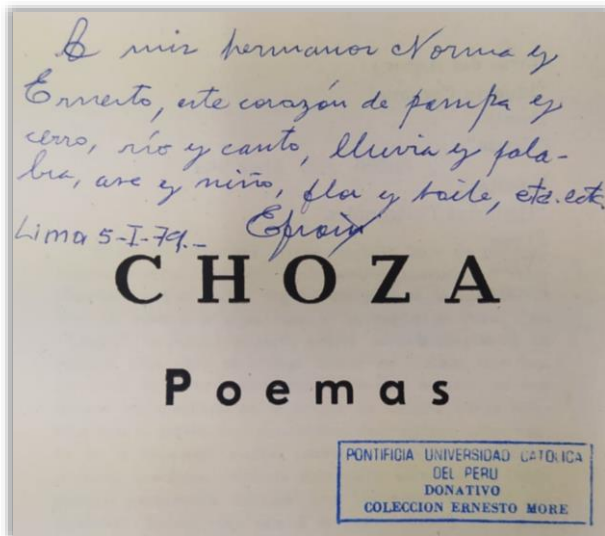 A mis hermanos Norma y
Ernesto, este corazón de pampa y
cerro, río y canto, lluvia y pala-
bra, ave y niño, flor y baile, etc. ect.
Lima 5-I-79.- Efraín
CHOZA
Poemas
PONTIFICIA UNIVERSIDAD CATOLICA
DEL PERU
DONATIVO
COLECCION ERNESTO MORE